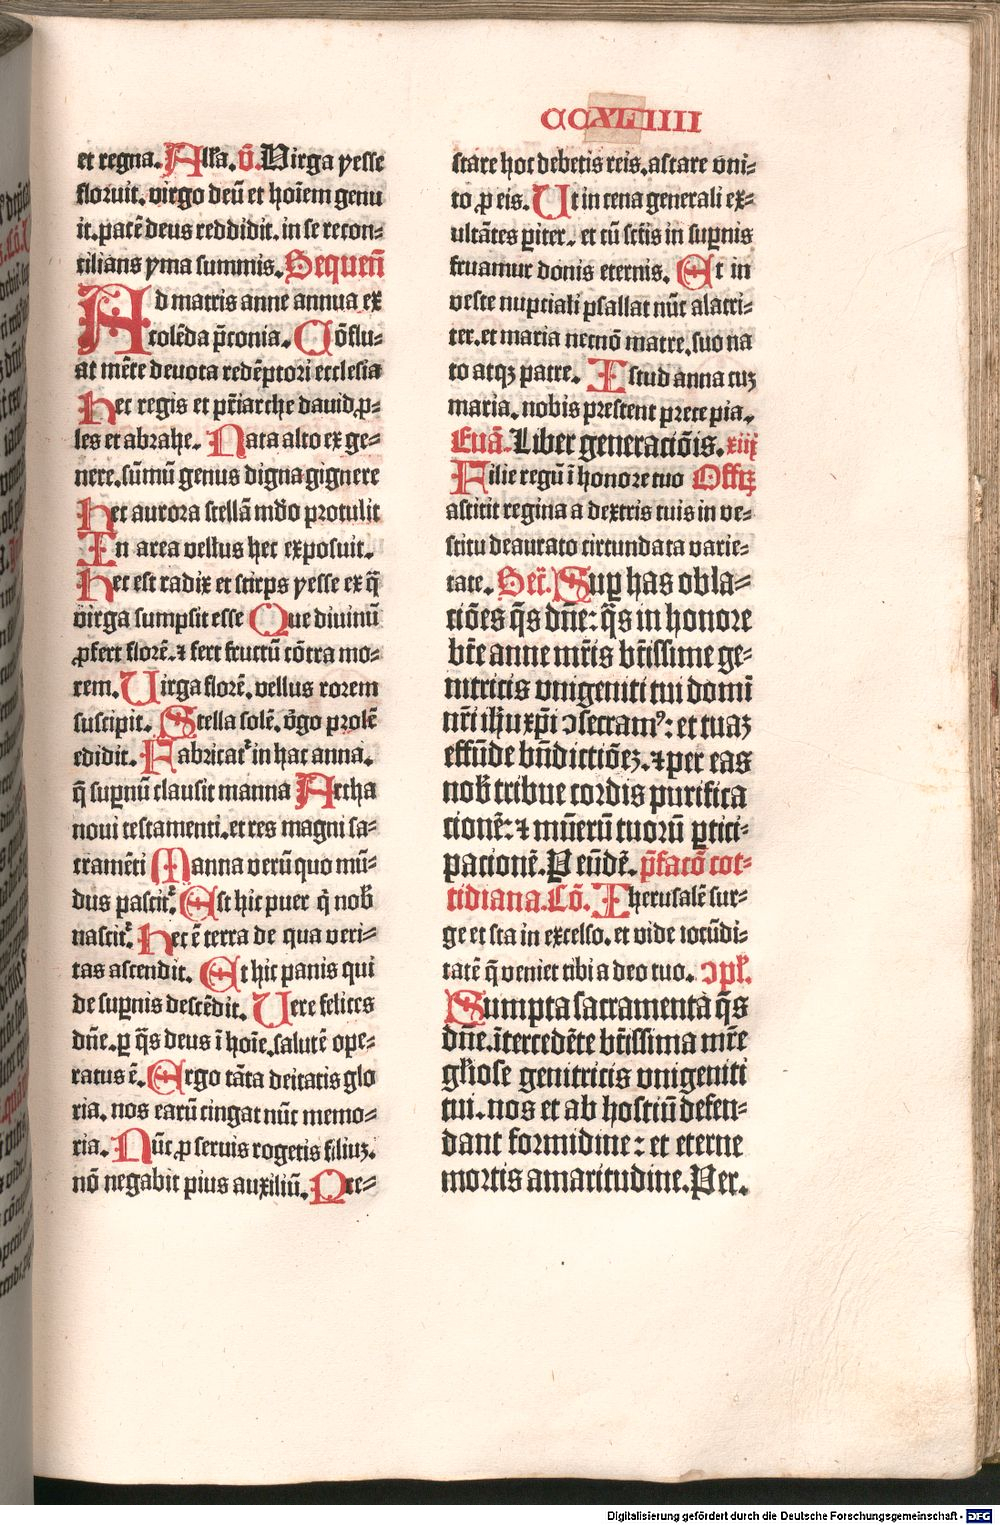 CCXLIIII
et regna. Alla. v̄. Virga yesse
floruit. virgo deū et hoīem genu
it. patē deus reddidit. in se recon-
cilians yma summis. Sequen̄
Ad matris anne annua ex
colēda p̄conia. Cōflu-
at mēte deuota redēptori ecclesia
Hec regis et pr̄iarche dauid ꝓ-
les et abrahe. Nata alto ex ge-
nere. sūmū genus digna gignere
Hec aurora stellā mūdo protulit
In area vellus hec exposuit.
Hec est radix et stirps yesse ex q̄
virga sumpsit esse Que diuinū
ꝓfert florē. ⁊ fert fructū cōtra mo-
rem. Uirga florē. vellus rorem
suscipit. Stella solē. v̄go prolē
edidit. Fabricat᷑ in hac anna.
q̄ supnū clausit manna Archa
noui testamenti. et res magni sa-
cramēti Manna verū quo mū-
dus pascit᷑. Est hic puer q̄ nob̄
nascit᷑. Hec ē terra de qua veri-
tas ascendit. Et hic panis qui
de supnis descēdit. Uere felices
dn̄e. ꝑ q̄s deus ī hoīe. salutē ope-
ratus ē. Ergo tāta deitatis glo
ria. nos earū cingat nūc memo-
ria. Nūc ꝓ seruis rogetis filiuꝫ.
nō negabit pius auxiliū. Pre-
stare hoc debetis reis. astare vni-
to ꝓ eis. Ut in cena generali ex-
ultātes ꝑiter. et cū sctīs in supnis
fruamur donis eternis. Et in
veste nupciali psallat nūc alacri-
ter. et maria necnō matre. suo na
to atqꝫ patre. Istud anna cuꝫ
maria. nobis prestent prece pia.
Euā. Liber generaciōis. xiiꝭ
Filie regū ī honore tuo Offꝫ
astitit regina a dextris tuis in ve-
stitu deaurato circundata varie-
tate. Secr̄. Suꝑ has obla-
ciōes q̄s dn̄e: q̄s in honore
btē anne mr̄is btīssime ge-
nitricis vnigeniti tui domī
nr̄i ih̄u xp̄i ↄsecramꝰ: et tuaꝫ
effūde bn̄dictiōeꝫ. ⁊ per eas
nob̄ tribue cordis purifica
cionē: ⁊ mūerū tuorū ꝑtici-
pacionē. P eūdē. p̄facō cot-
tidiana. Cō. Iherusalē sur-
ge et sta in excelso. et vide iocūdi-
tatē q̄ veniet tibi a deo tuo. ↄpl̄.
Sumpta sacramenta q̄s
dn̄e. ītercedēte btīssima mr̄e
gl̄iose genitricis vnigeniti
tui. nos et ab hostiū defen-
dant formidine: et eterne
mortis amaritudine. Per.
Digitalisierung gefördert durch die Deutsche Forschungsgemeinschaft - DFG